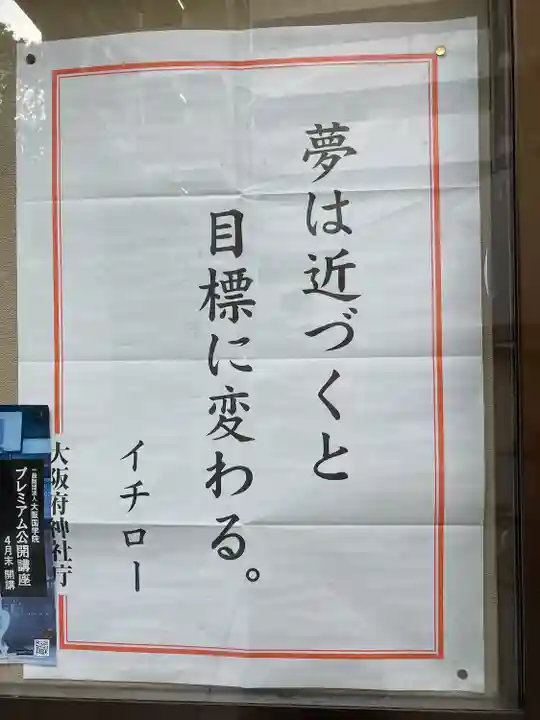 夢は近づくと
目標に変わる。
イチロー
大阪府神社庁
一般財団法人 大阪国学院
プレミアム公開講座
4月末 開講